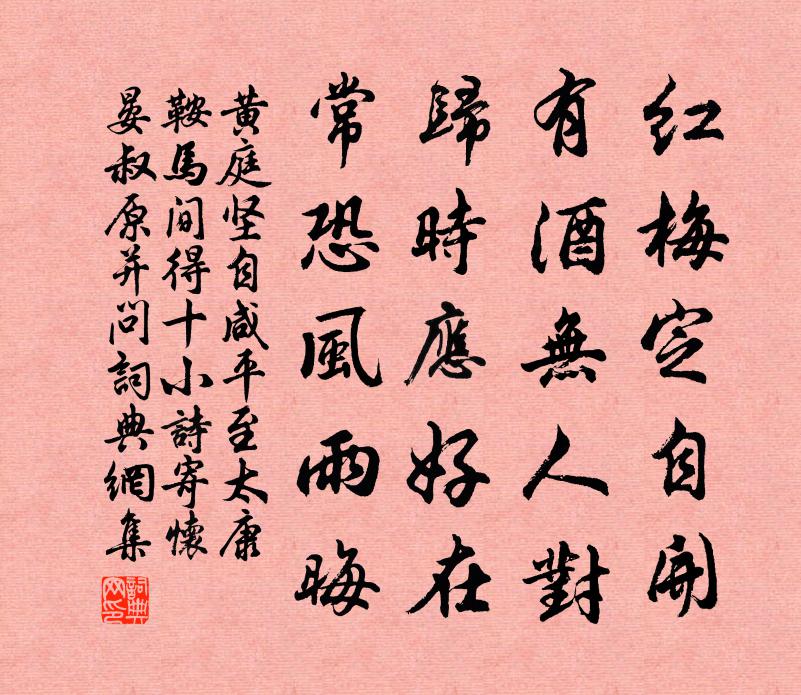 红梅定自開
有酒無人對
歸時應好在
常恐風雨晦
黄庭坚自咸平至太康
鞍馬间得十小詩寄懷
晏叔原并问詞典網集
詞典网印